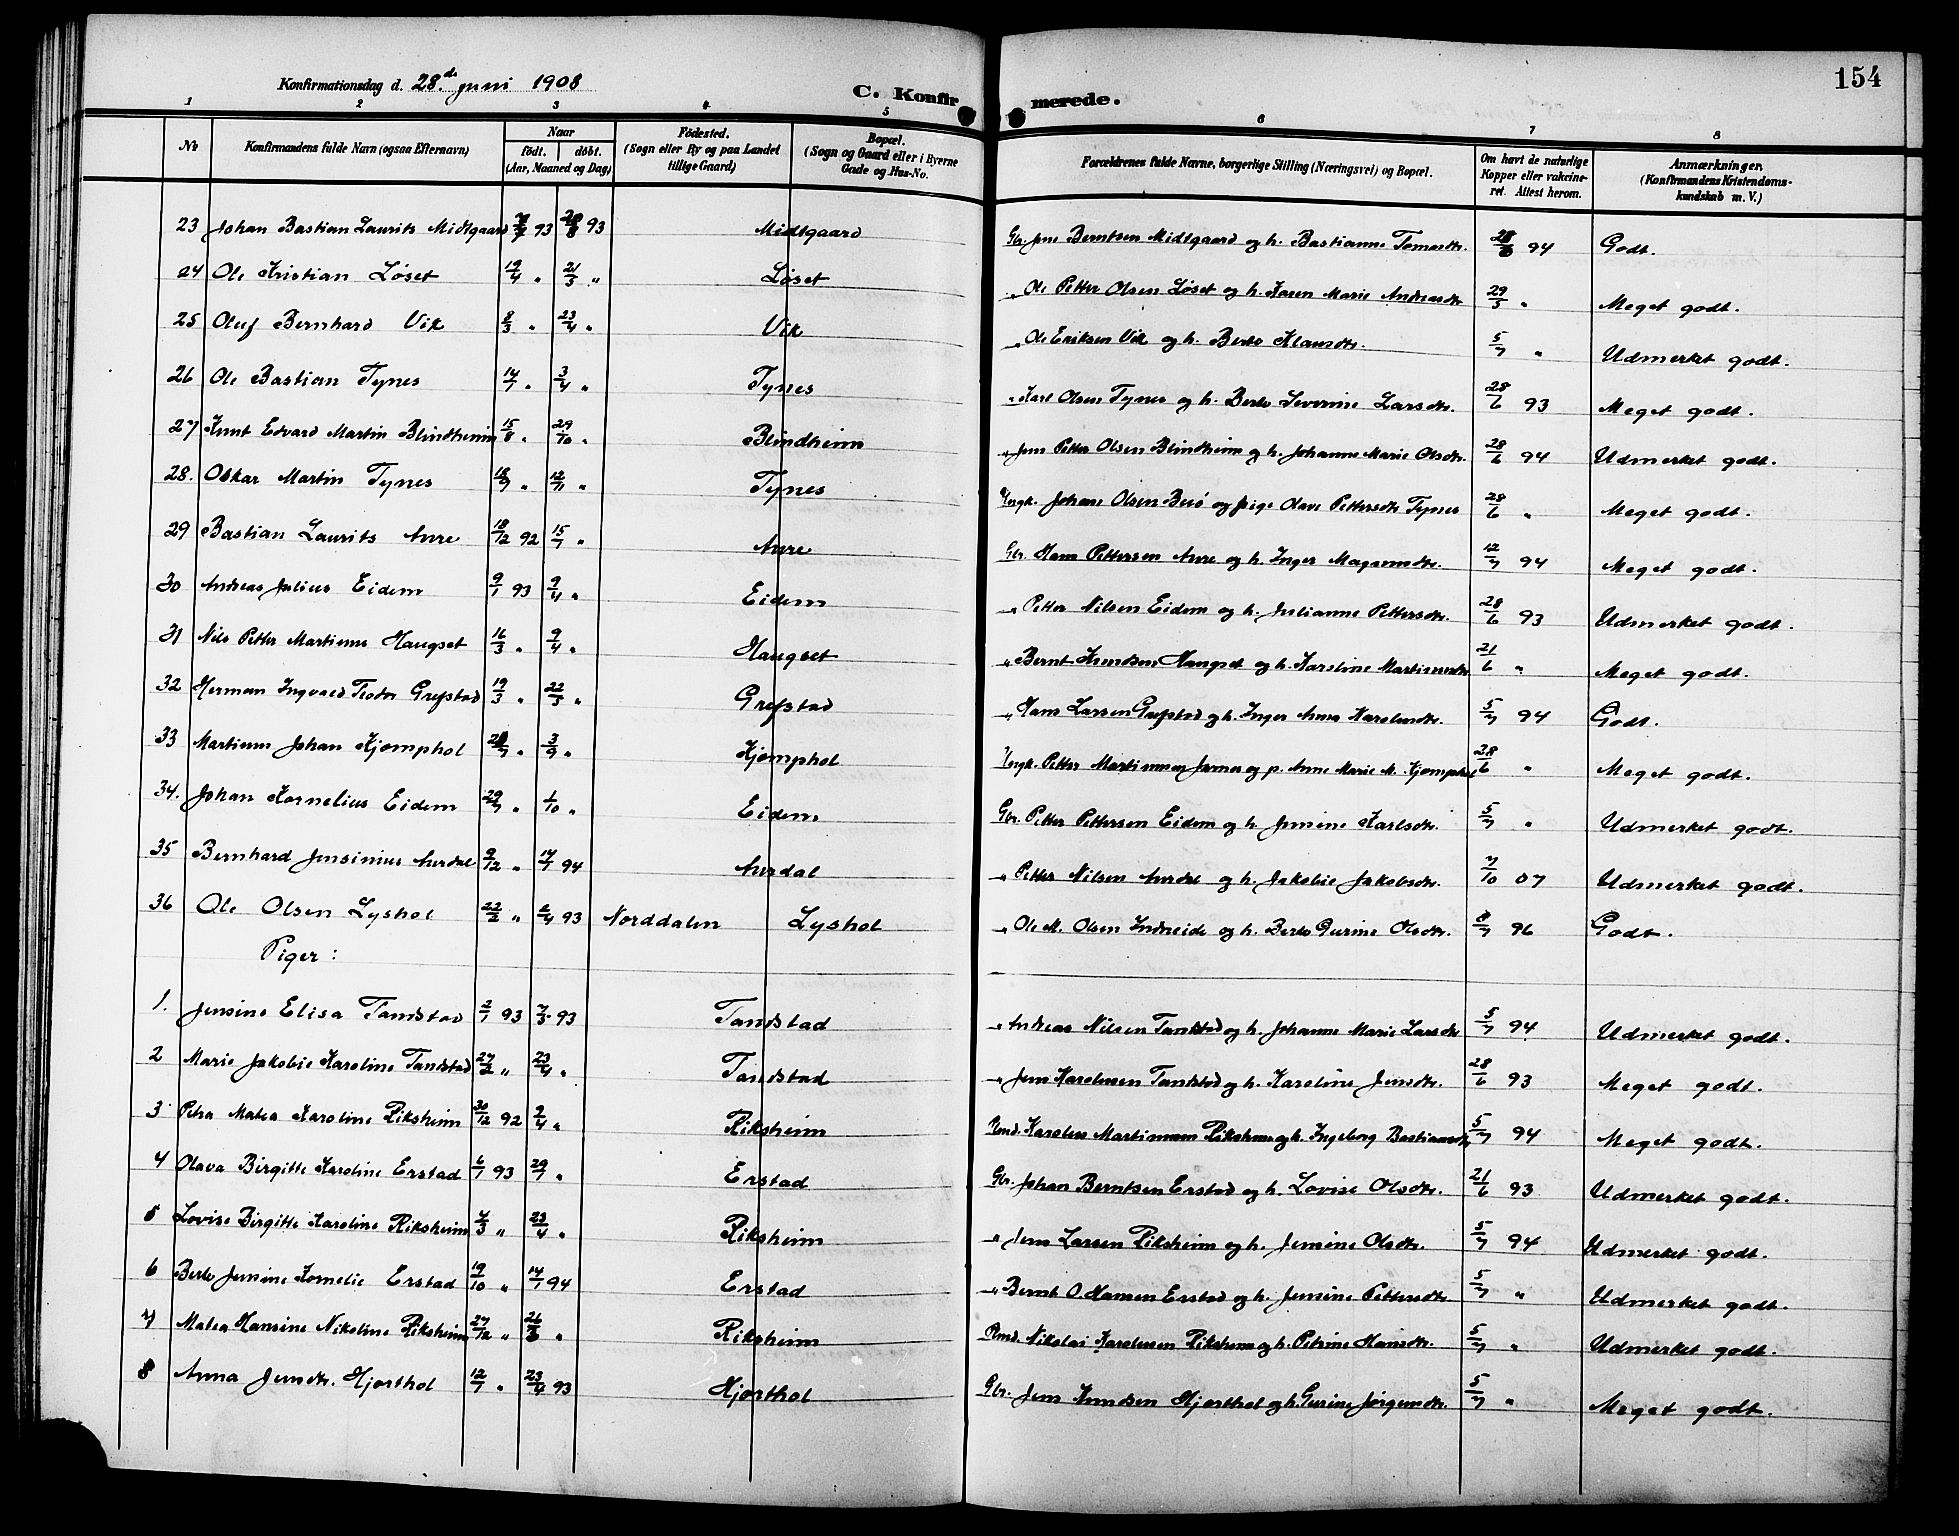 154
Konfirmationsdag d. 28de juni 1908
C. Konfirmerede.
1 2 3 4 5 6 7 8
No
Konfirmandens fulde Navn (ogsaa Efternavn)
Naar født. døbt. (Aar, Maaned og Dag)
Fødested. (Sogn eller By og paa Landet tillige Gaard)
Bopæl. (Sogn og Gaard eller i Byerne Gade og Hus-No.
Forældrenes fulde Navne, borgerlige Stilling (Næringsvei) og Bopæl.
Om havt de naturlige Kopper eller vakcineret. Attest herom.
Anmærkninger. (Konfirmandens Kristendomskundskab m. V.)
23 Johan Bastian Laurits Midtgaard 93 93 Midtgaard Gbr. Jens Berntsen Midtgaard og h. Bastianne Tomasdtr. 94 Godt.
24 Ole Kristian Løset 19/4 " 21/3 " Løset " Ole Petter Olsen Løset og h. Karen Marie Andreasdtr 29/5 " Meget godt.
25 Oluf Bernhard Vik 8/3 " 23/4 " Vik " Ole Eriksen Vik og h. Berte Klausdtr. 5/7 " Udmerket godt.
26 Ole Bastian Tynes 14/7 " 3/4 " Tynes " Karl Olsen Tynes og h. Berte Severine Larsdtr. 28/6 93 Meget godt.
27 Knut Edvard Martin Blindheim 15/8 " 29/10 " Blindheim " Jens Petter Olsen Blindheim og h. Johanne Marie Olsdtr. 28/6 94 Udmerket godt.
28. Oskar Martin Tynes 18/9 " 12/11 " Tynes Ungk. Johans Olsen og pige Olave Pettersdtr Tynes 28/6 " Meget godt.
29 Bastian Laurits Aure 18/12 92 15/1 " Aure Gbr. Hans Pettersen Aure og h. Inger Magnusdtr. 12/7 94 Meget godt.
30 Andreas Julius Eidem 9/1 93 9/4 " Eidem " Petter Nilsen Eidem og h. Julianne Pettersdtr. 28/6 93 Udmerket godt.
31 Nils Petter Martinus Haugset 16/3 " 9/4 " Haugset " Bernt Knudsen Haugset og h. Karoline Martinusdtr 21/6 " Meget godt.
32 Herman Ingvald Teodor Grefstad 19/3 " 22/5 " Grefstad " Hans Larsen Grefstad og h. Inger Anna Karolusdtr. 5/7 94 Godt.
33 Martinus Johan Kjømphol " 3/9 " Kjømphol Ungk. Petter Martinus og p. Anne Marie M. Kjømphol 28/6 " Meget godt.
34. Johan Kornelius Eidem 29/7 " 1/10 " Eidem Gbr. Petter Pettersen Eidem og h. Jensine Karlsdtr. 5/7 " Udmerket godt.
35 Bernhard Jensinius Aurdal 9/12 " 14/1 94 Aurdal " Petter Nilsen Aurdal og h. Jakobie Jakobsdtr. 7/10 07 Udmerket godt.
36 Ole Olsen Lyshol 22/2 " 2/4 93 Norddalen Lyshol " Ole M. Olsen Indreeide og h. Berte Gurine Olsdtr. 8/7 96 Godt.
Piger:
1. Jensine Elisa Tandstad 2/1 93 7/5 93 Tandstad " Andreas Nilsen Tandstad og h. Johanne Marie Larsdtr 5/7 94 Udmerket godt.
2 Marie Jakobie Karoline Tandstad 27/2 " 23/4 " Tandstad " Jens Karolussen Tandstad og h. Karoline Jensdtr. 28/6 93 Meget godt.
3 Petra Matea Karoline Riksheim 30/12 92 2/4 " Riksheim Karolus Martinussen Riksheim og h. Ingeborg Bastiansdtr 5/7 94 Meget godt.
4 Olava Birgitte Karoline Erstad 6/1 93 29/1 " Erstad Gbr. Johan Berntsen Erstad og h. Lovise Olsdtr. 21/6 93 Udmerket godt.
5 Lovise Birgitte Karoline Riksheim 7/3 " 23/4 " Riksheim " Jens Larsen Riksheim og h. Jensine Olsdtr. 5/7 94 Udmerket godt.
6 Berte Jensine Kornelie Erstad 19/10 " 14/1 94 Erstad " Bernt O. Hansen Erstad og h. Jensine Pettersdtr 5/7 " Udmerket godt.
7 Matea Hansine Nikoline Riksheim 27/12 " " Riksheim Nikolai Karolussen Riksheim og h. Petrine Hansdtr. 5/7 " Udmerket godt.
8 Anna Jensdtr. Hjorthol 12/1 " 23/4 93 Hjorthol Gbr. Jens Knudsen Hjorthol og h. Gurine Jørgensdtr. 5/7 " Meget godt.